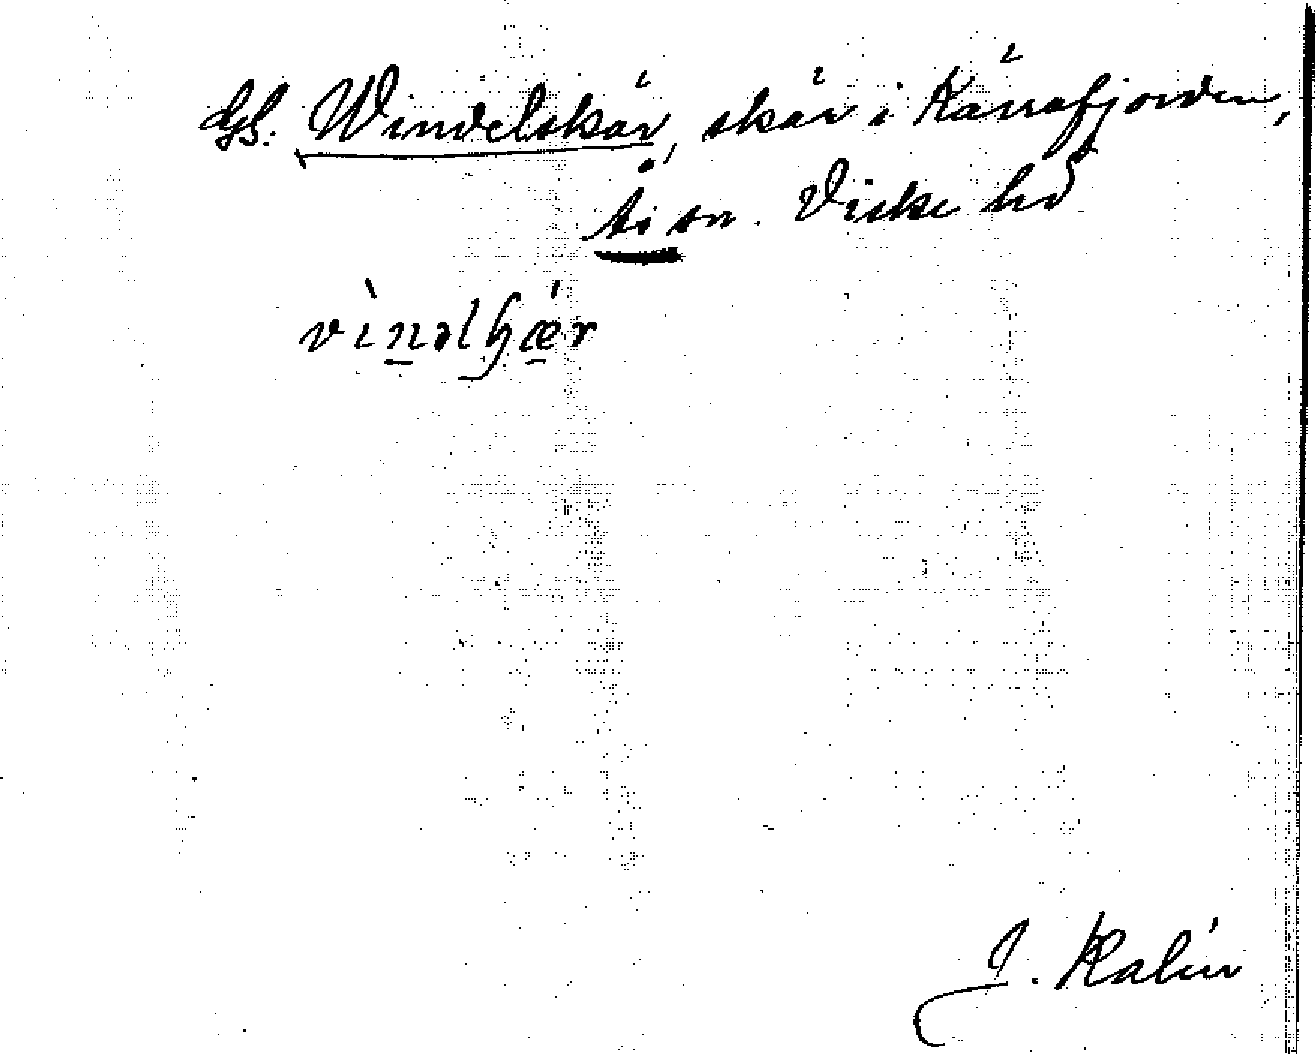 GS. Windelskär, skär i Kärrafjorden,
Ås sn. Viske hd
vìn̲əlʂǽ̲r
J. Kalén